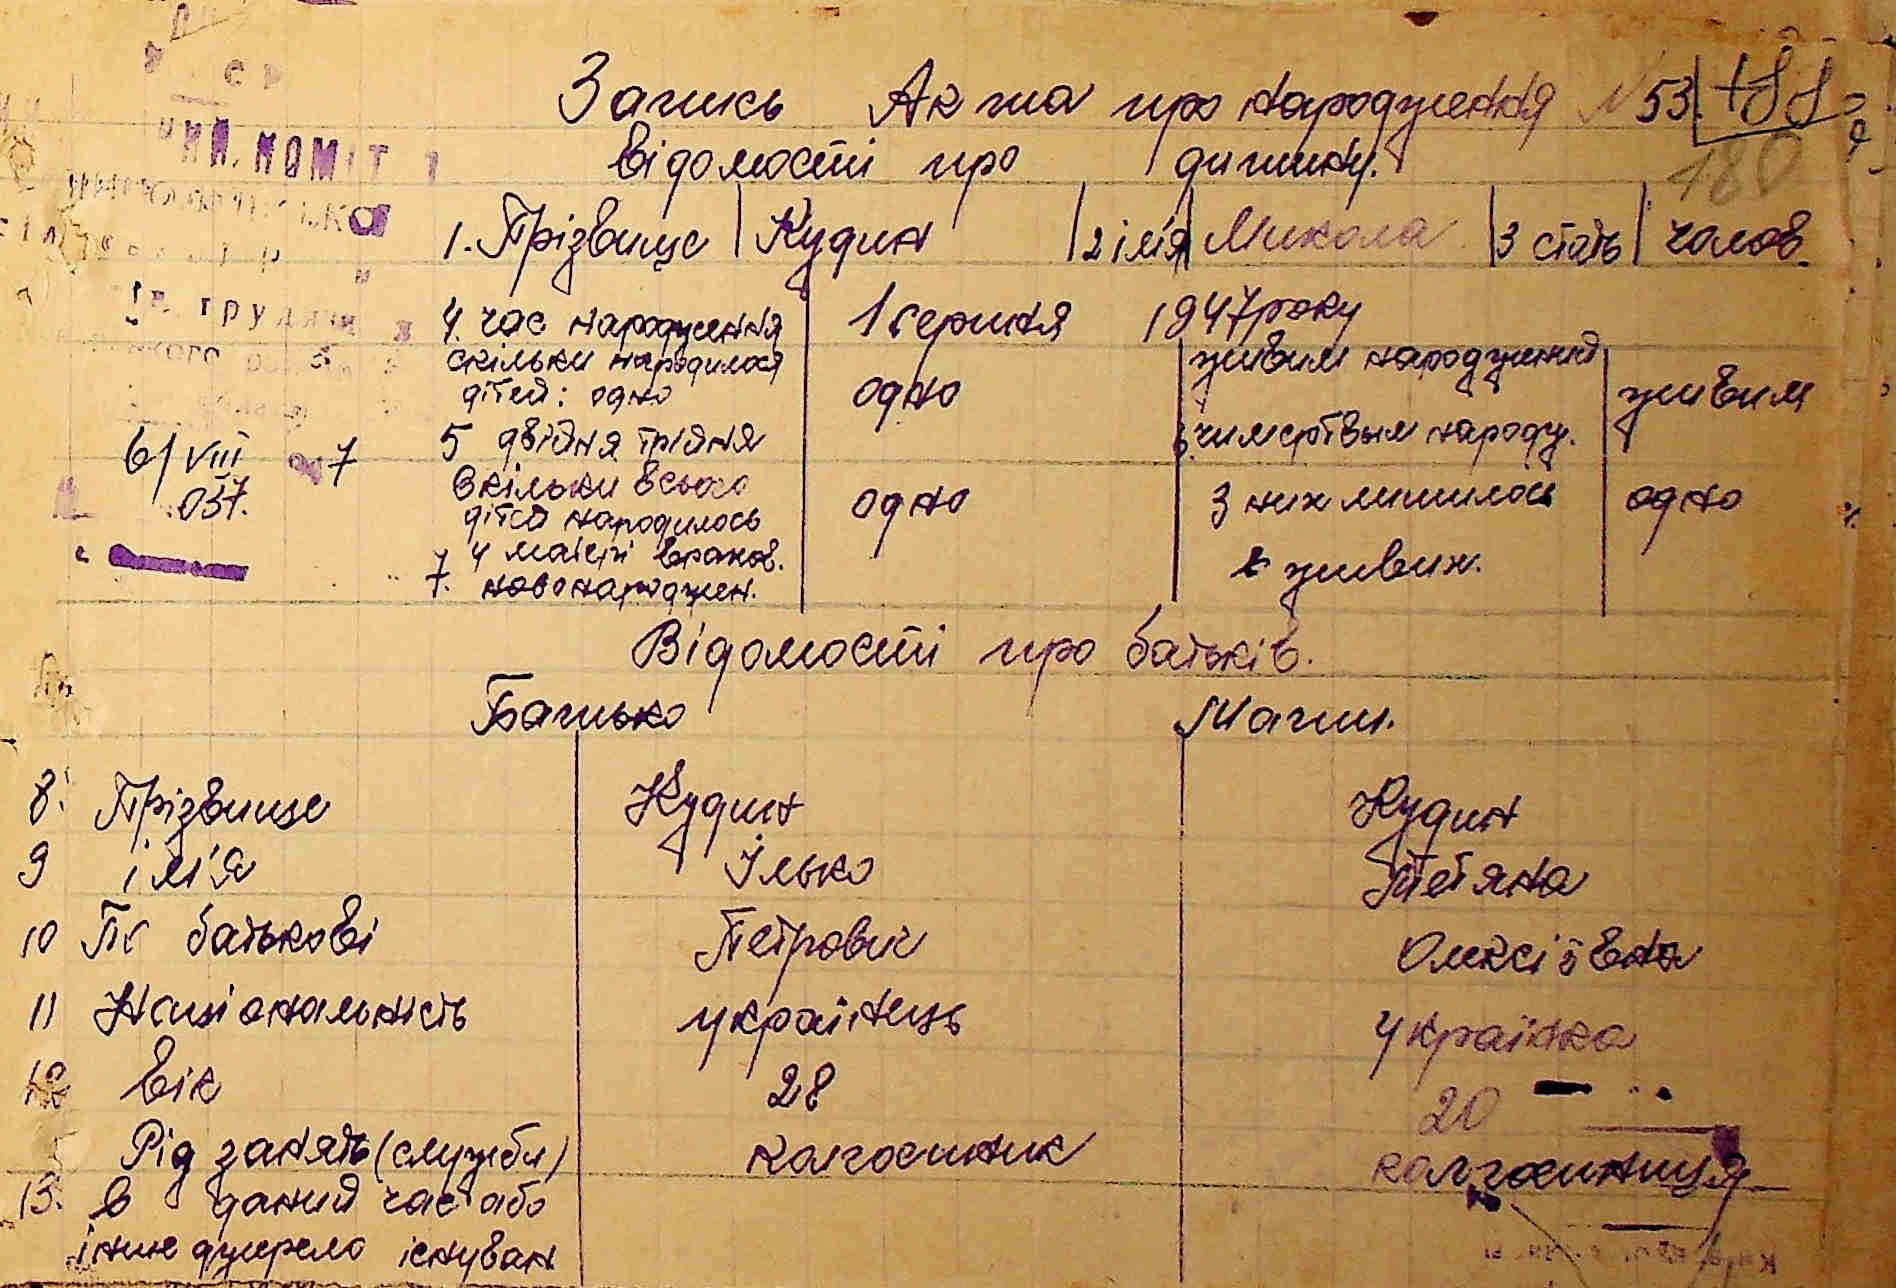 Запись Акта про народження N 53
Відомости про дитину.
180
1. Прізвище Кудин 2 імія Микола 3 стать чолов.
4. час народження 1 серпня 1947 року
скільки народилося дітей: одно
одно
живим народжений
живим
5 двійня трійня
чи мертвым народж.
6/VIII 7
Скільки всього дітей народилось
одно
З них лишилось
одно
037.
у матері враков.
живих.
7. новонароджен.
Відомості про батьків.
Батько Мати.
8. Прізвище Кудин Кудин
9 ім'я Ілько Тетяна
10 По батькові Петрович Олексіївна
11 Національність українець українка
12 вік 28 20
Рід занять (служби) колгоспник колгоспниця
13. в даний час або
інше джерело існуван